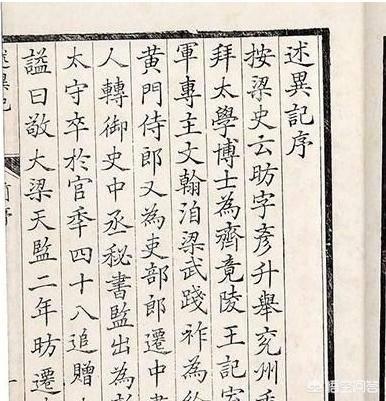 述異記序
按梁史云昉字彥升舉兗州
拜太學博士為齊竟陵王記室
軍專主文翰洎梁武踐祚為給
黃門侍郎又為吏部郎遷中書
人轉御史中丞秘書監出為
太守卒於官秊四十八追贈
諡曰敬大梁天監二年昉遷
述異記
悟空问答